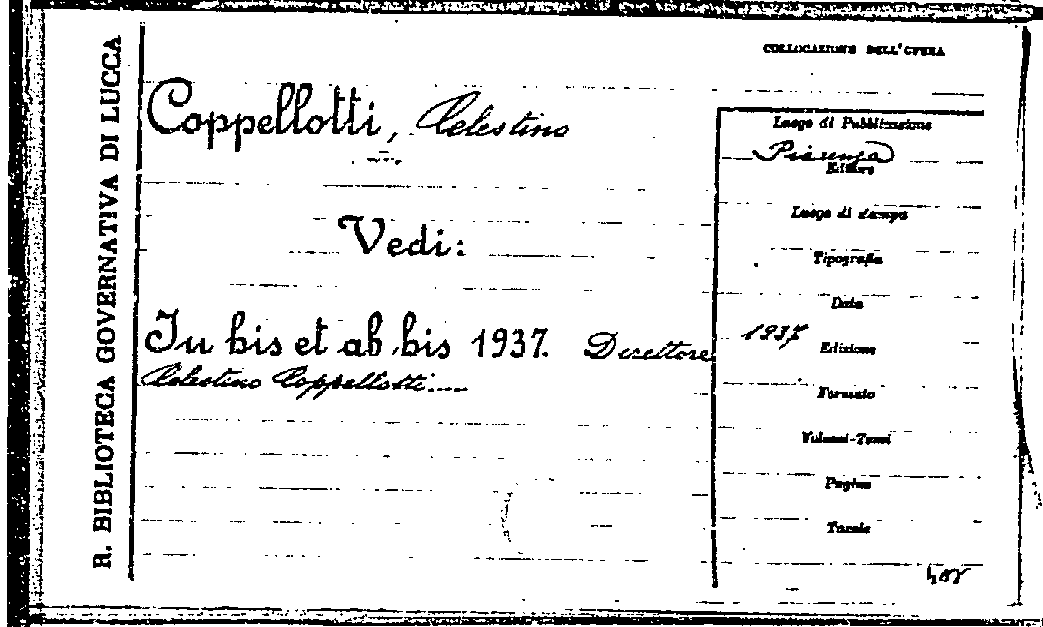 R. BIBLIOTECA GOVERNATIVA DI LUCCA
COLLOCAZIONE DELL'OPERA
Coppellotti, Celestino
Vedi:
In his et ab his 1937. Direttore
Celestino Coppellotti....
Luogo di Pubblicazione
Piacenza
Editore
Luogo di stampa
Tipografia
Data
1937
Edizione
Formato
Volumi-Tomi
Pagine
Tavole